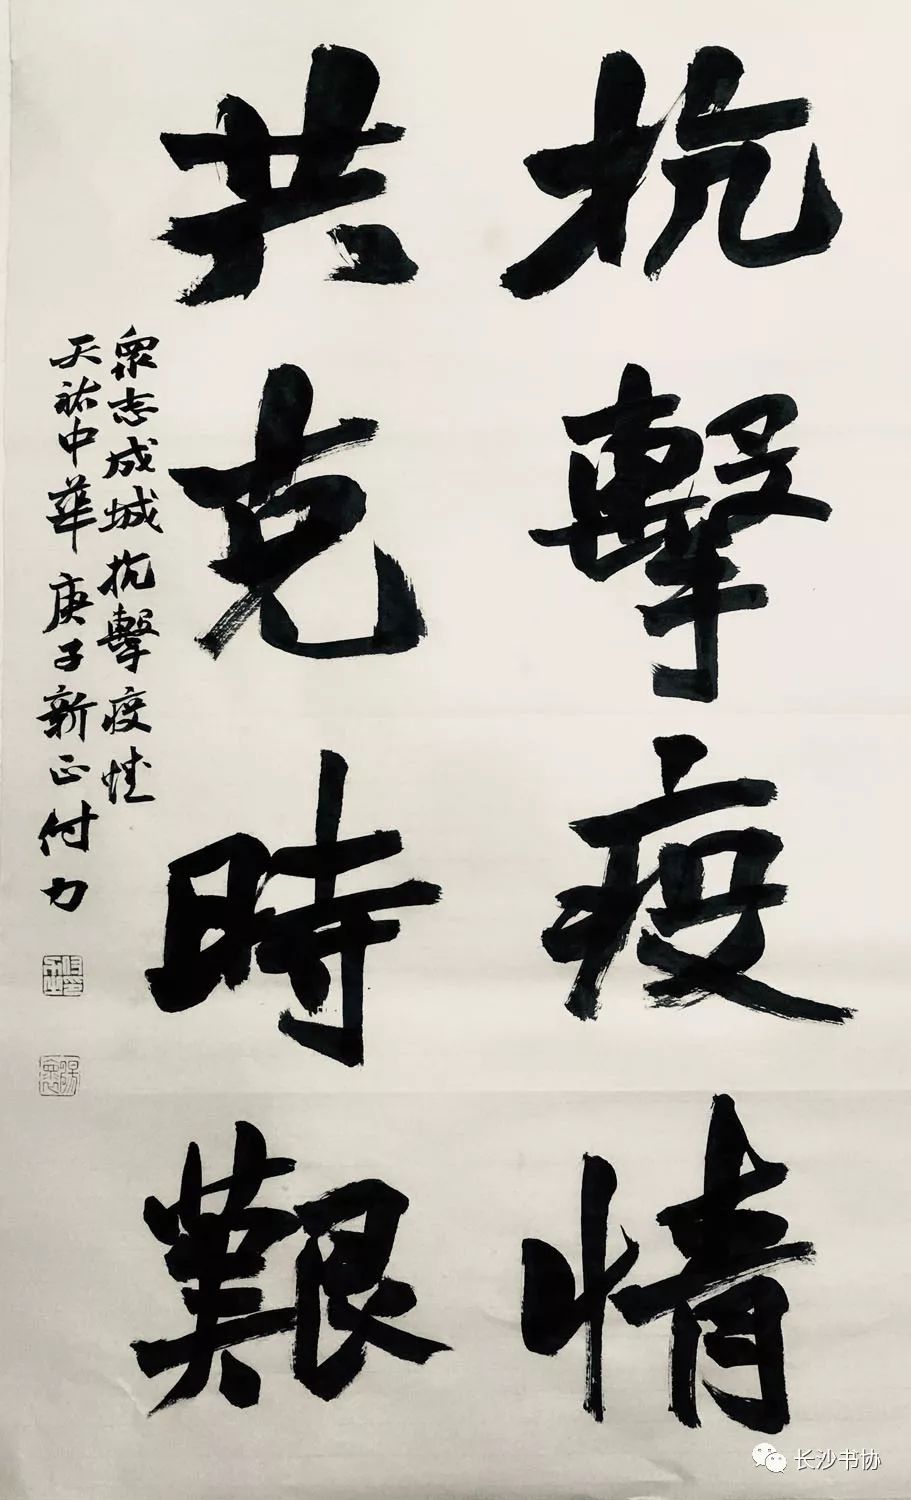 抗擊疫情
共克時艱
衆志成城抗擊疫情
天祐中華庚子新正付力
长沙书协